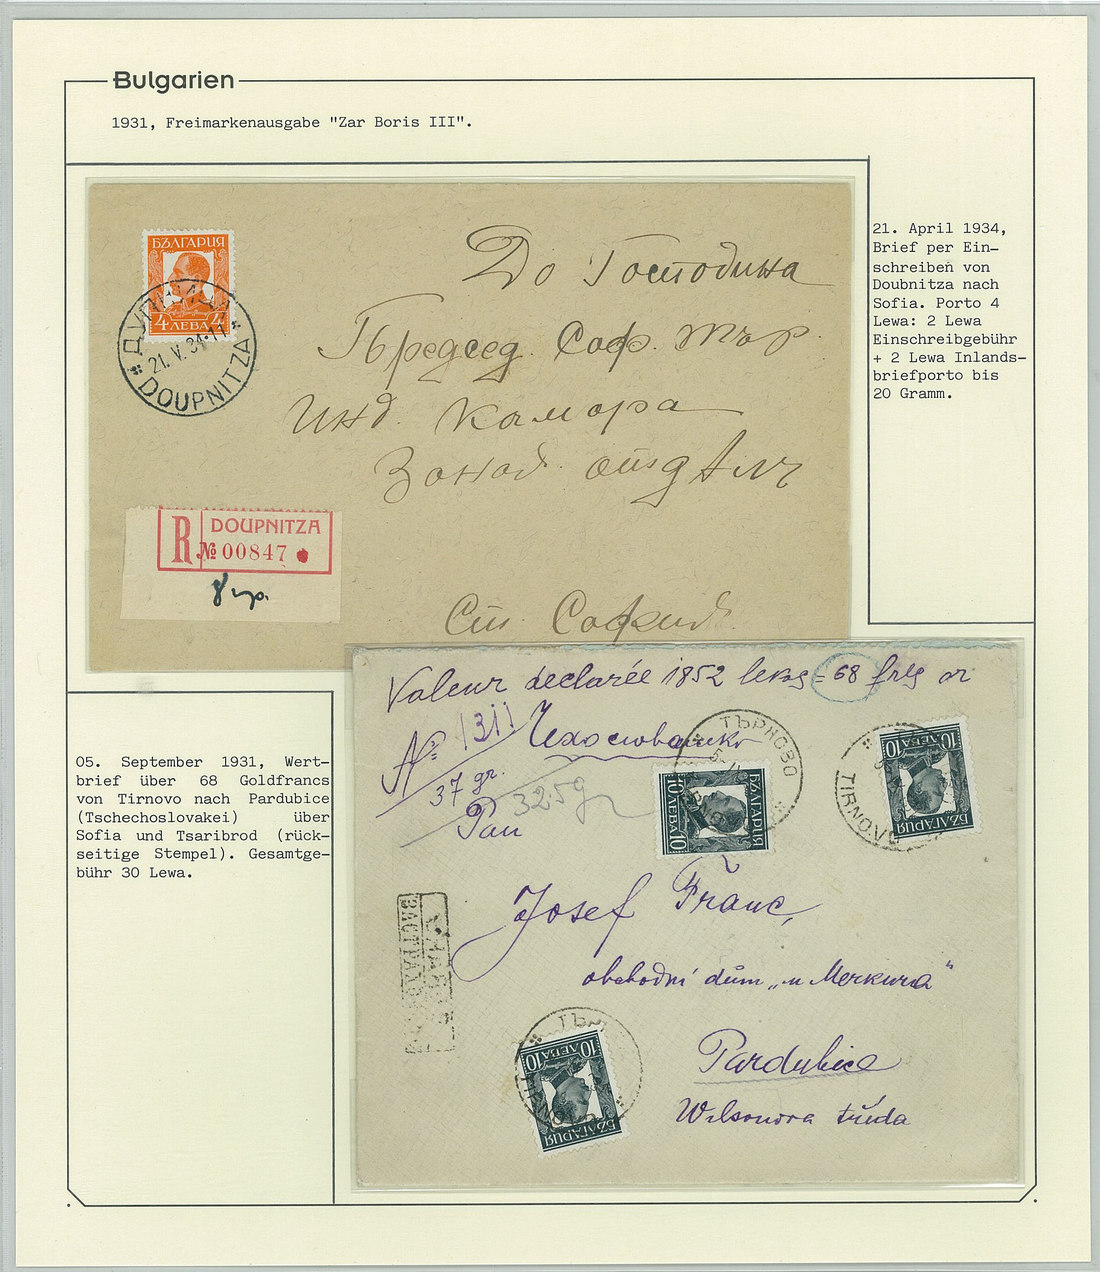 Bulgarien
1931, Freimarkenausgabe "Zar Boris III".
21. April 1934,
Brief per Ein-
schreiben von
Doubnitza nach
Sofia. Porto 4
Lewa: 2 Lewa
Einschreibgebühr
+ 2 Lewa Inlands-
briefporto bis
20 Gramm.
БЪЛГАРИЯ
4 ЛЕВА 4
21. V. 34.11
DOUPNITZA
До Господина
Председ. Соф. Тър.
Инд. Камара
R DOUPNITZA
№ 00847
София
Valeur declarée 1852 leva = 68 frcs or
№ 1311
37 gr.
325g
Pan
ТЪРНОВО
БЪЛГАРИЯ
10 ЛЕВА 10
БЪЛГАРИЯ
10 ЛЕВА 10
TIRNOVO
Josef Franc,
obchodní dům „u Merkura"
Pardubice
Wilsonova třída
БЪЛГАРИЯ
10 ЛЕВА 10
05. September 1931, Wert-
brief über 68 Goldfrancs
von Tirnovo nach Pardubice
(Tschechoslovakei) über
Sofia und Tsaribrod (rück-
seitige Stempel). Gesamtge-
bühr 30 Lewa.